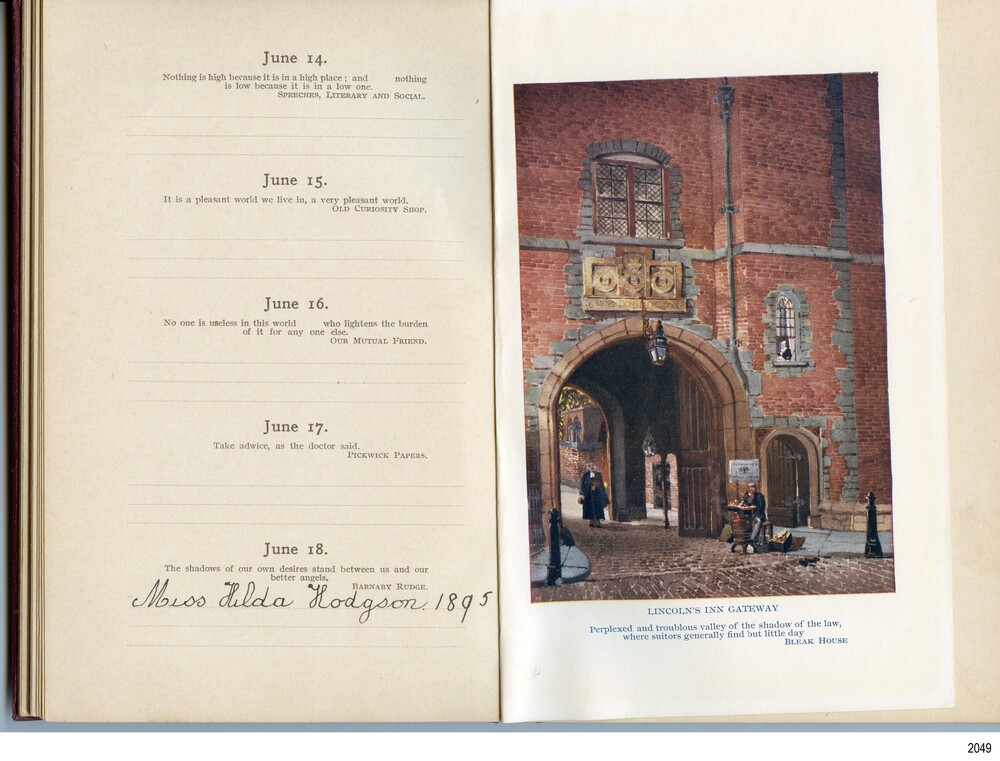 June 14.
Nothing is high because it is in a high place ; and nothing
is low because it is in a low one.
SPEECHES, LITERARY AND SOCIAL.
June 15.
It is a pleasant world we live in, a very pleasant world.
OLD CURIOSITY SHOP.
June 16.
No one is useless in this world who lightens the burden
of it for any one else.
OUR MUTUAL FRIEND.
June 17.
Take adwice, as the doctor said.
PICKWICK PAPERS.
June 18.
The shadows of our own desires stand between us and our
better angels.
BARNABY RUDGE.
Miss Hilda Hodgson. 1895
LINCOLN'S INN GATEWAY
Perplexed and troublous valley of the shadow of the law,
where suitors generally find but little day
BLEAK HOUSE
2049